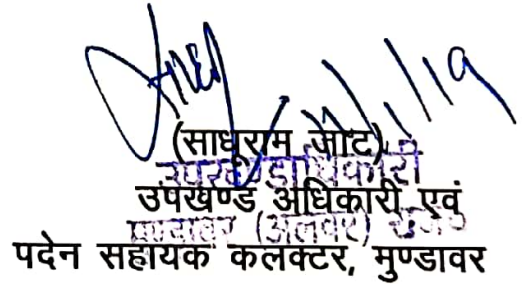 (साधूराम जाट)
उपखण्डाधिकारी
उपखण्ड अधिकारी एवं
मुण्डावर (अलवर) राज०
पदेन सहायक कलक्टर, मुण्डावर